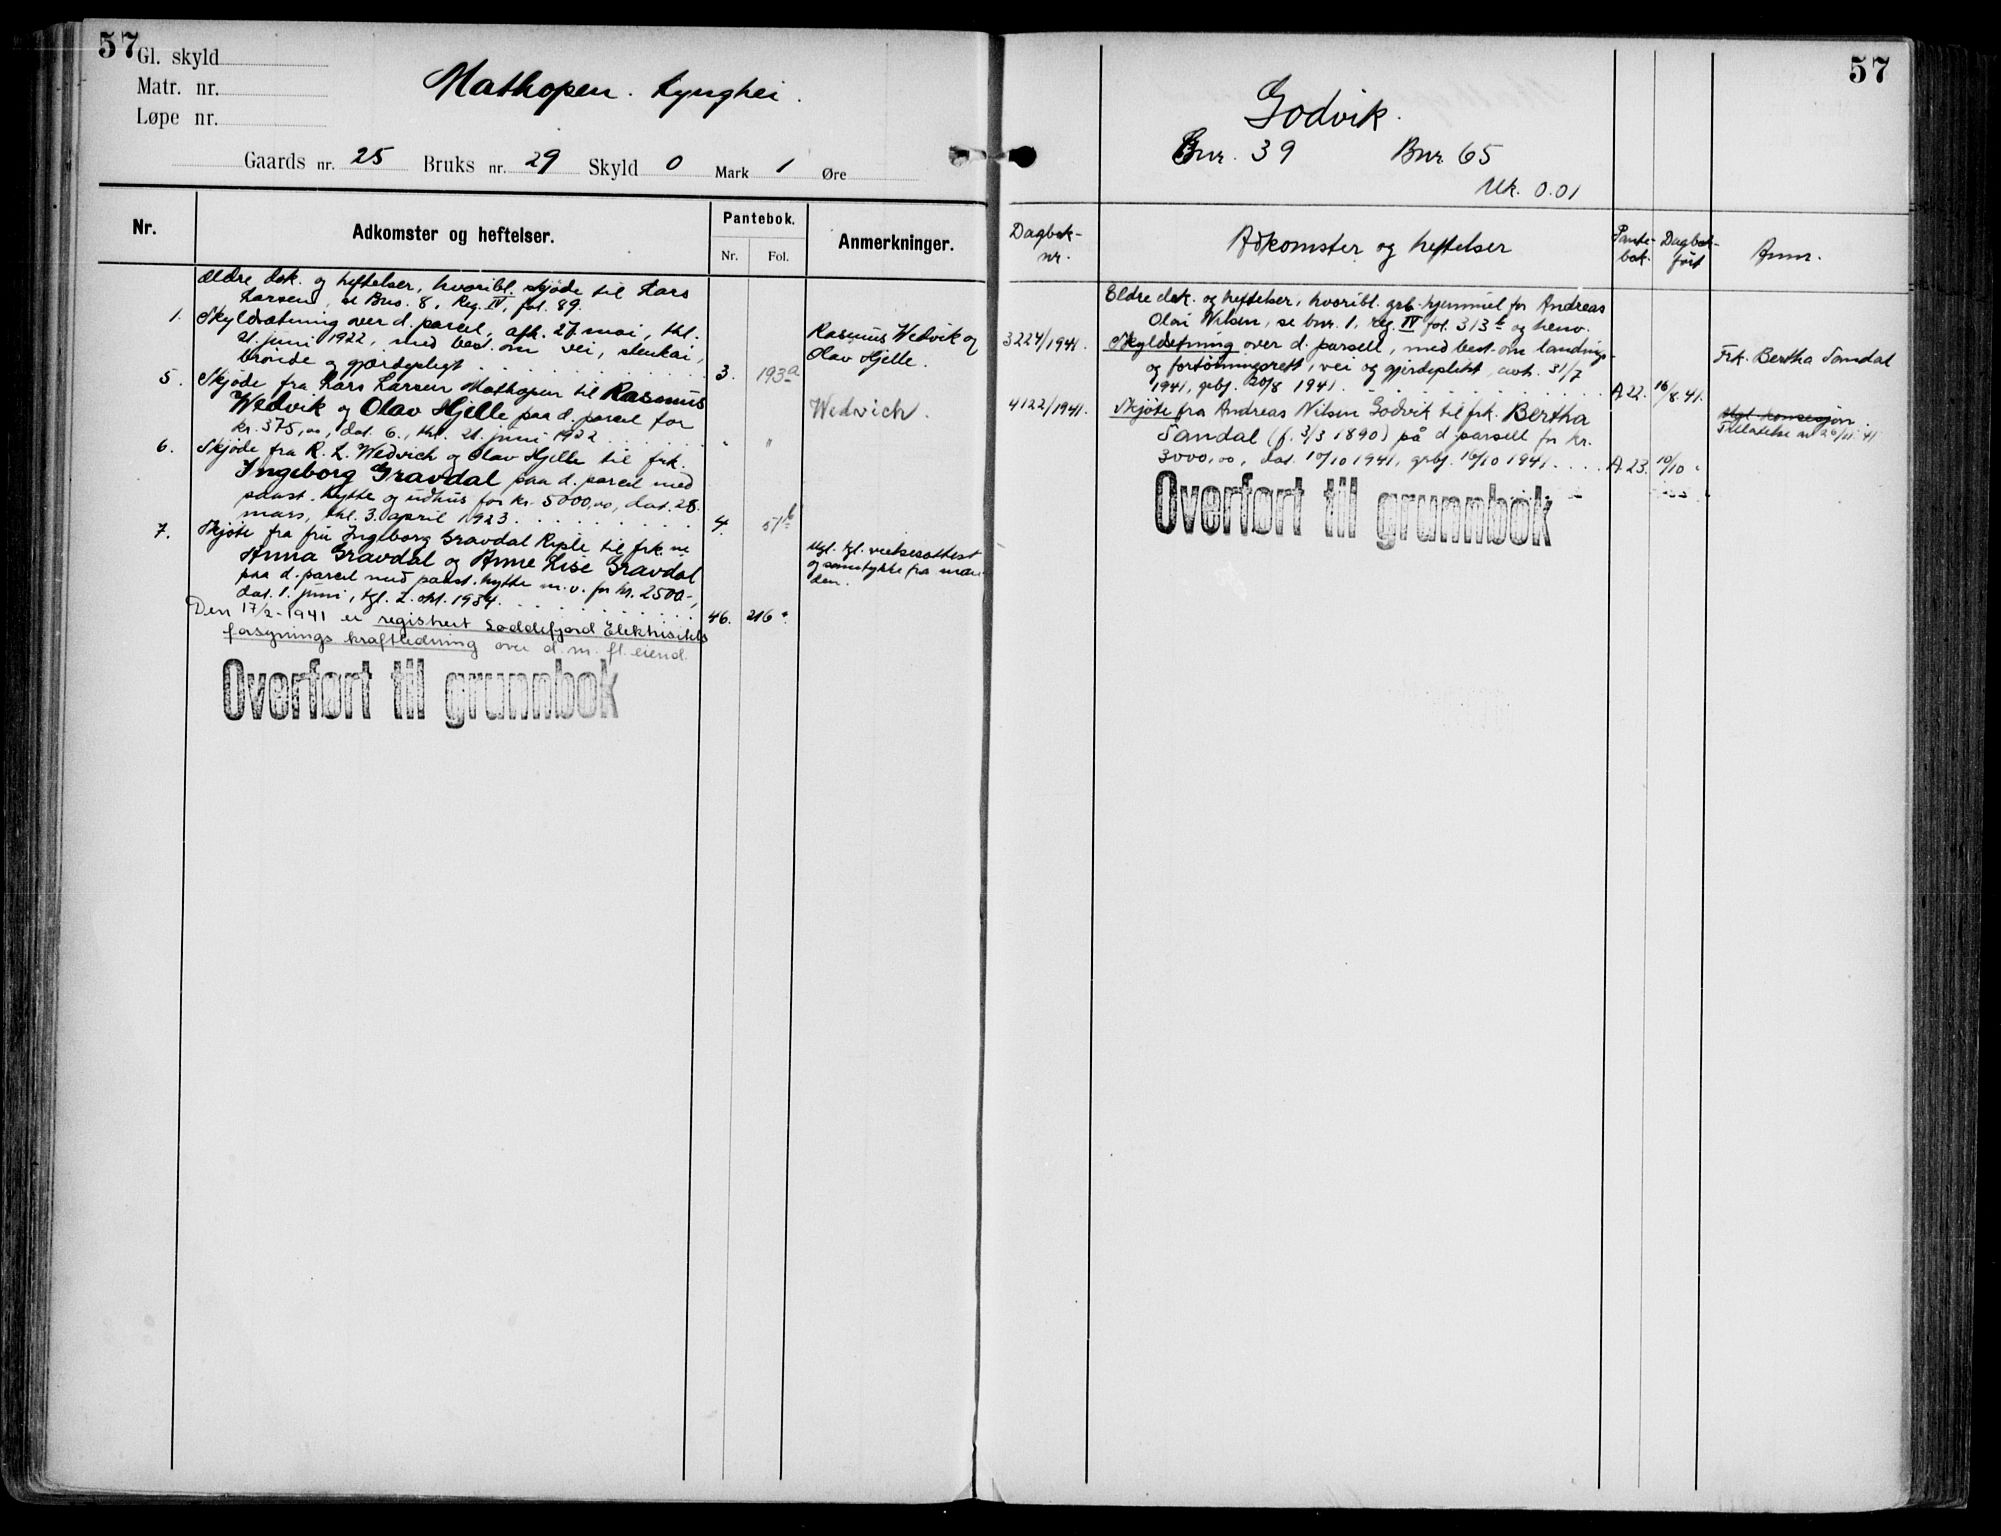 57
Gl. skyld
Matr. nr.
Løpe nr.
Mathopen. Lynghei.
Gaards nr. 25 Bruks nr. 29 Skyld 0 Mark 1 Øre
Nr.
Adkomster og heftelser.
Pantebok.
Nr. Fol.
Anmerkninger.
Ældre dok. og heftelser, hvoribl. skjøde til Lars
Larsen, se Bno. 8, Reg. IV, fol. 89.
1. Skyldsætning over d. parcel, afh. 27 mai, thl.
21. juni 1922, med best. om vei, stenkai,
brønde og gjærdepligt 3. 193a
Rasmus Wedvik og
Olav Hjelle.
5. Skjøde fra Lars Larsen Mathopen til Rasmus
Wedvik og Olav Hjelle paa d. parcel for
kr. 375,00, dat. 6., thl. 21. juni 1922 " "
Wedvich.
6. Skjøde fra R. L. Wedvich og Olav Hjelle til frk.
Ingeborg Gravdal paa d. parcel med
paast. hytte og udhus for kr. 5000,00, dat. 28.
mars, thl. 3. april 1923. 4. 51b
7. Skjøte fra fru Ingeborg Gravdal Riple til frk.ne
Anna Gravdal og Anne Lise Gravdal
paa d. parcel med paast. hytte m.v. for kr. 2500-,
dat. 1. juni, tgl. 2. okt. 1934. 46. 216
Mgl. tgl. vielsesattest
og samtykke fra man-
den.
Den 17/2-1941 er registrert Loddefjord Elektrisitets
forsynings kraftledning over d. m. fl. eiend.
Overført til grunnbok
57
Godvik.
Gnr. 39 Bnr. 65
Mk. 0.01
Dagbok-
nr.
Adkomster og heftelser
Pante-
bok.
Dagbok-
ført
Anm.
Eldre dok. og heftelser, hvoribl. grb. hjemmel for Andreas
Olai Nilsen, se bnr. 1, reg. IV fol. 313b og henv.
3224/1941. Skyldsetning over d. parsell, med best. om landings-
og fortøiningsrett, vei og gjerdeplikt, avh. 31/7
1941, grbf. 20/8 1941. A 22. 16/8.41.
Frk. Bertha Sandal
4122/1941. Skjøte fra Andreas Nilsen Godvik til frk. Bertha
Sandal (f. 3/3 1890) på d. parsell for kr.
3000,00, dat. 10/10 1941, grbf. 16/10 1941. A 23. 10/10 "
Mgl. konsesjon.
Tillatelse av 26/11.41
Overført til grunnbok